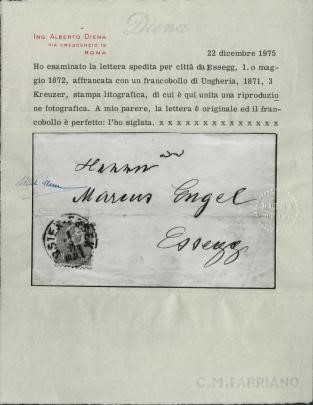 Diena
ING. ALBERTO DIENA
VIA CRESCENZIO 19
ROMA
22 dicembre 1975
Ho esaminato la lettera spedita per città da Essegg, 1.o mag-
gio 1872, affrancata con un francobollo di Ungheria, 1871, 3
Kreuzer, stampa litografica, di cui è qui unita una riproduzio
ne fotografica. A mio parere, la lettera è originale ed il fran-
cobollo è perfetto: l'ho siglata. x x x x x x x x x x x x x x
Herrn
Marcus Engel
Essegg
C.M.FABRIANO